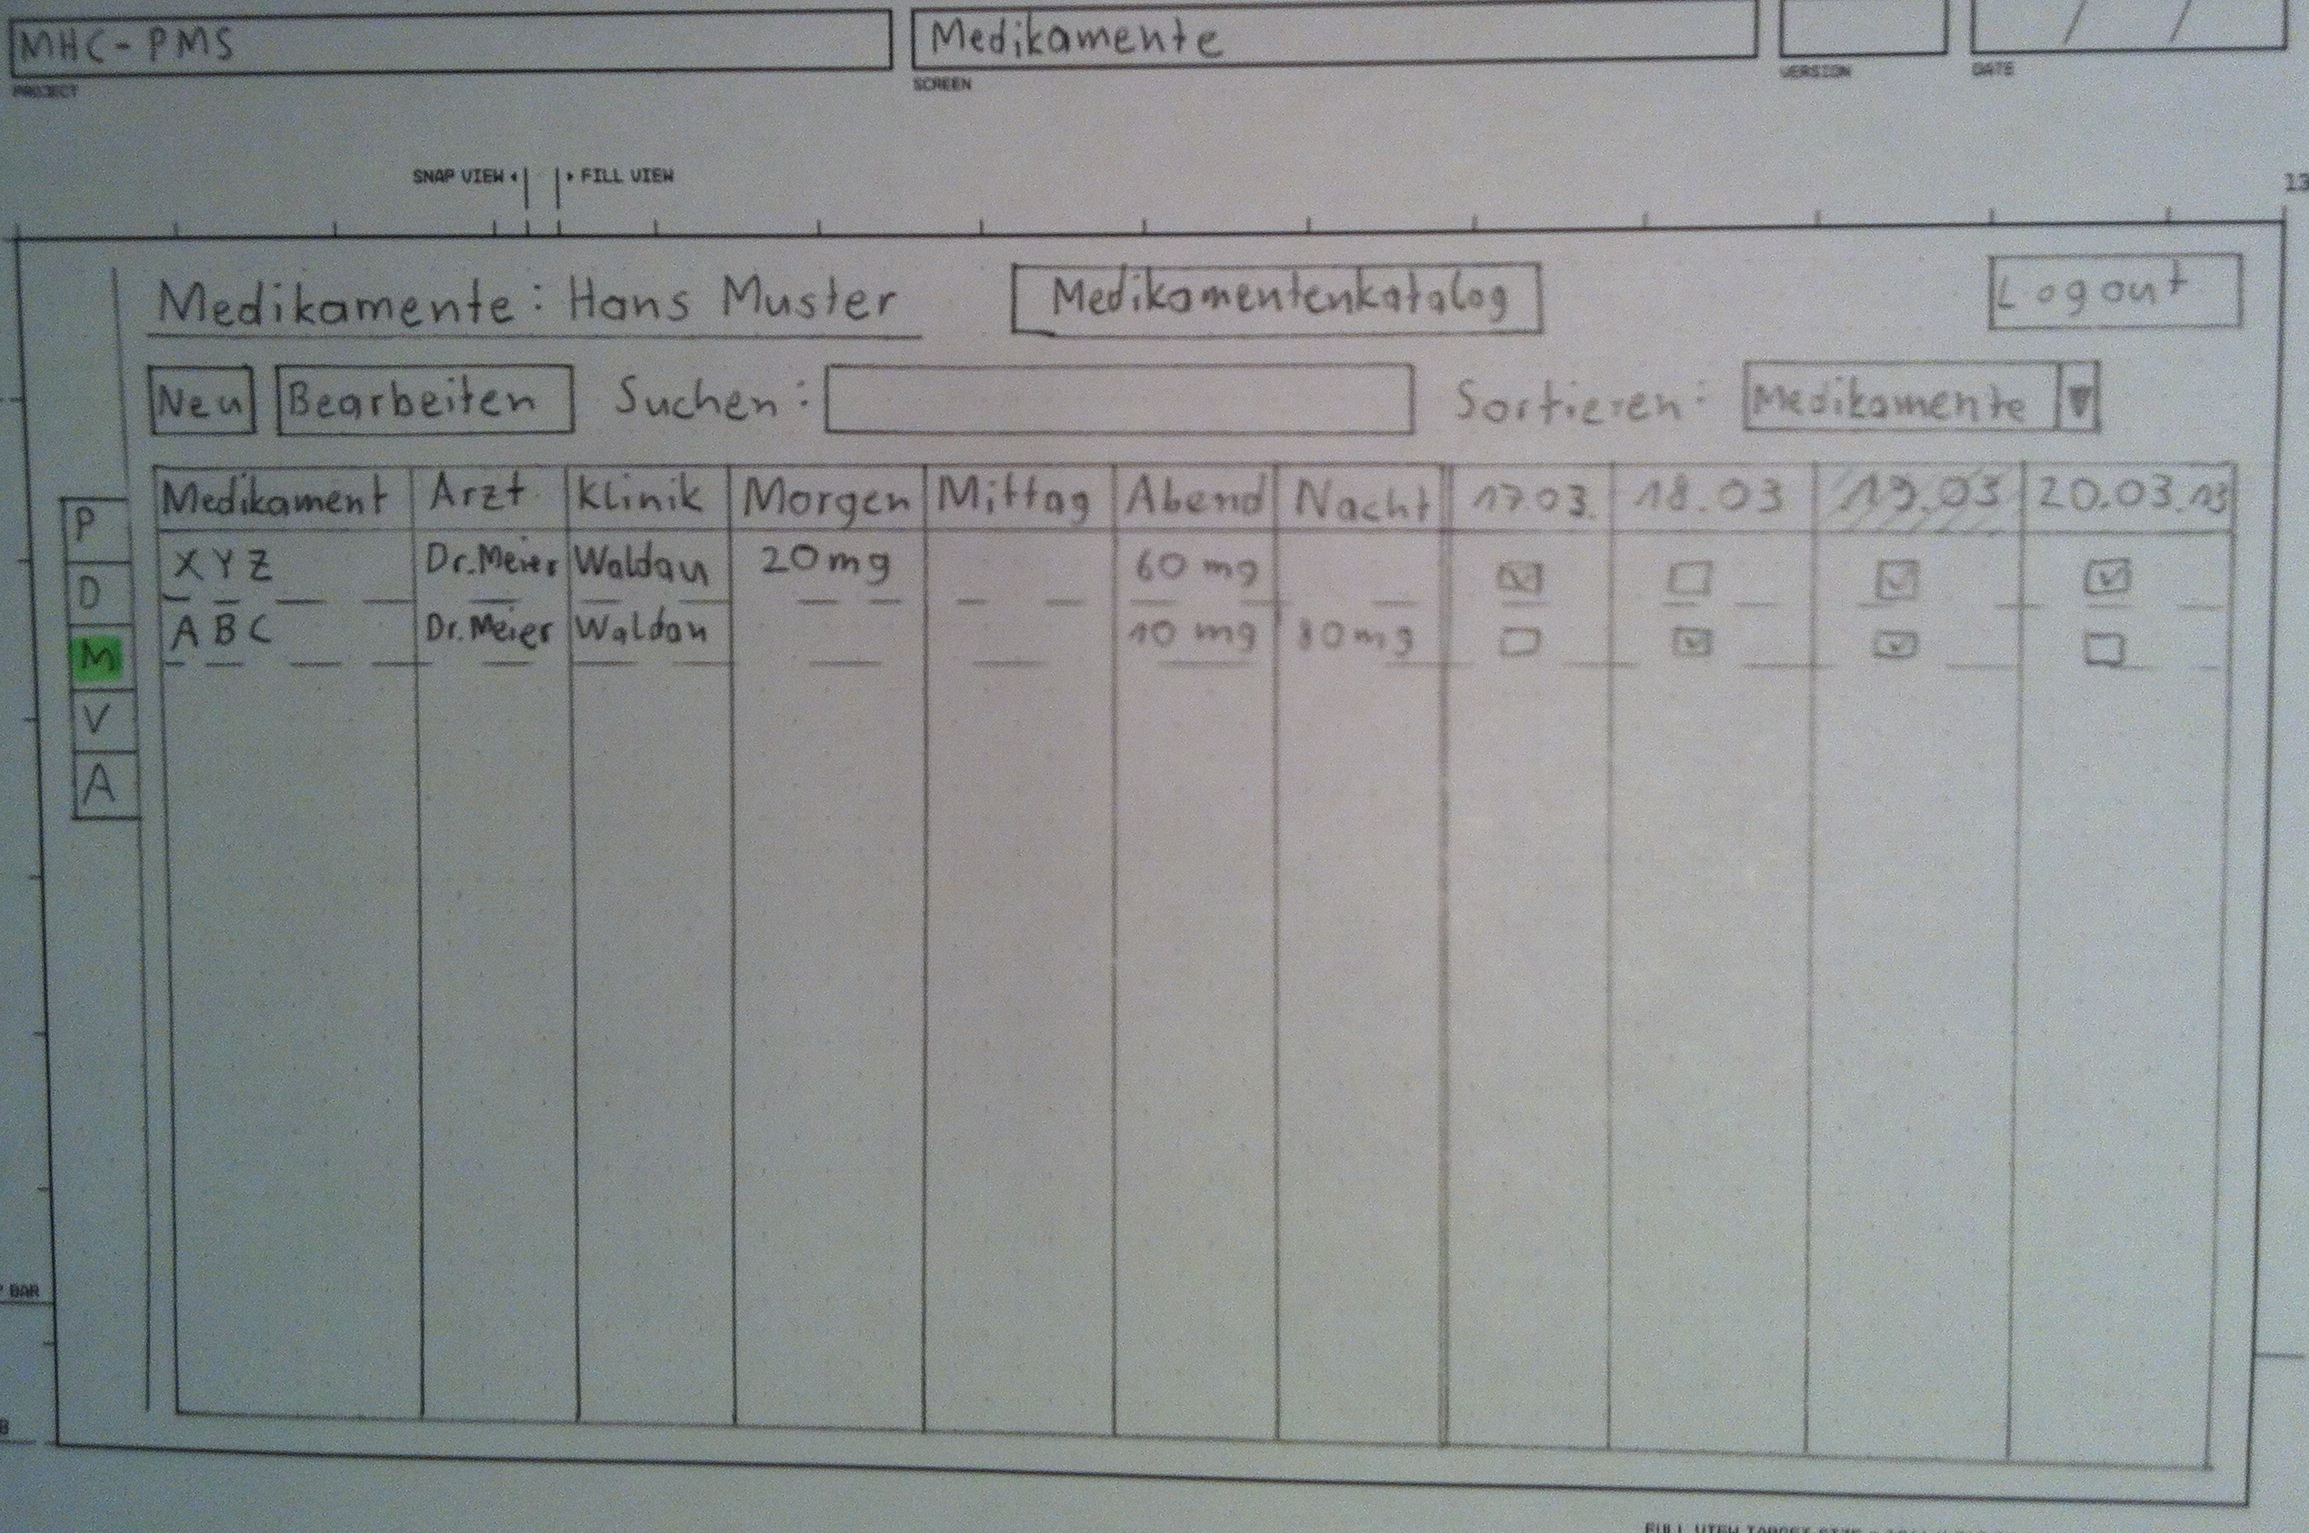 MHC-PMS
Medikamente
PROJECT
SCREEN
VERSION
DATE
/ /
SNAP VIEW
FILL VIEW
13
Medikamente: Hans Muster
Medikamentenkatalog
Logout
Neu
Bearbeiten
Suchen:
Sortieren:
Medikamente
Medikament Arzt Klinik Morgen Mittag Abend Nacht 17.03. 18.03 19.03 20.03.13
XYZ Dr.Meier Waldau 20mg 60mg
ABC Dr.Meier Waldau 10 mg 80mg
P
D
M
V
A
BAR